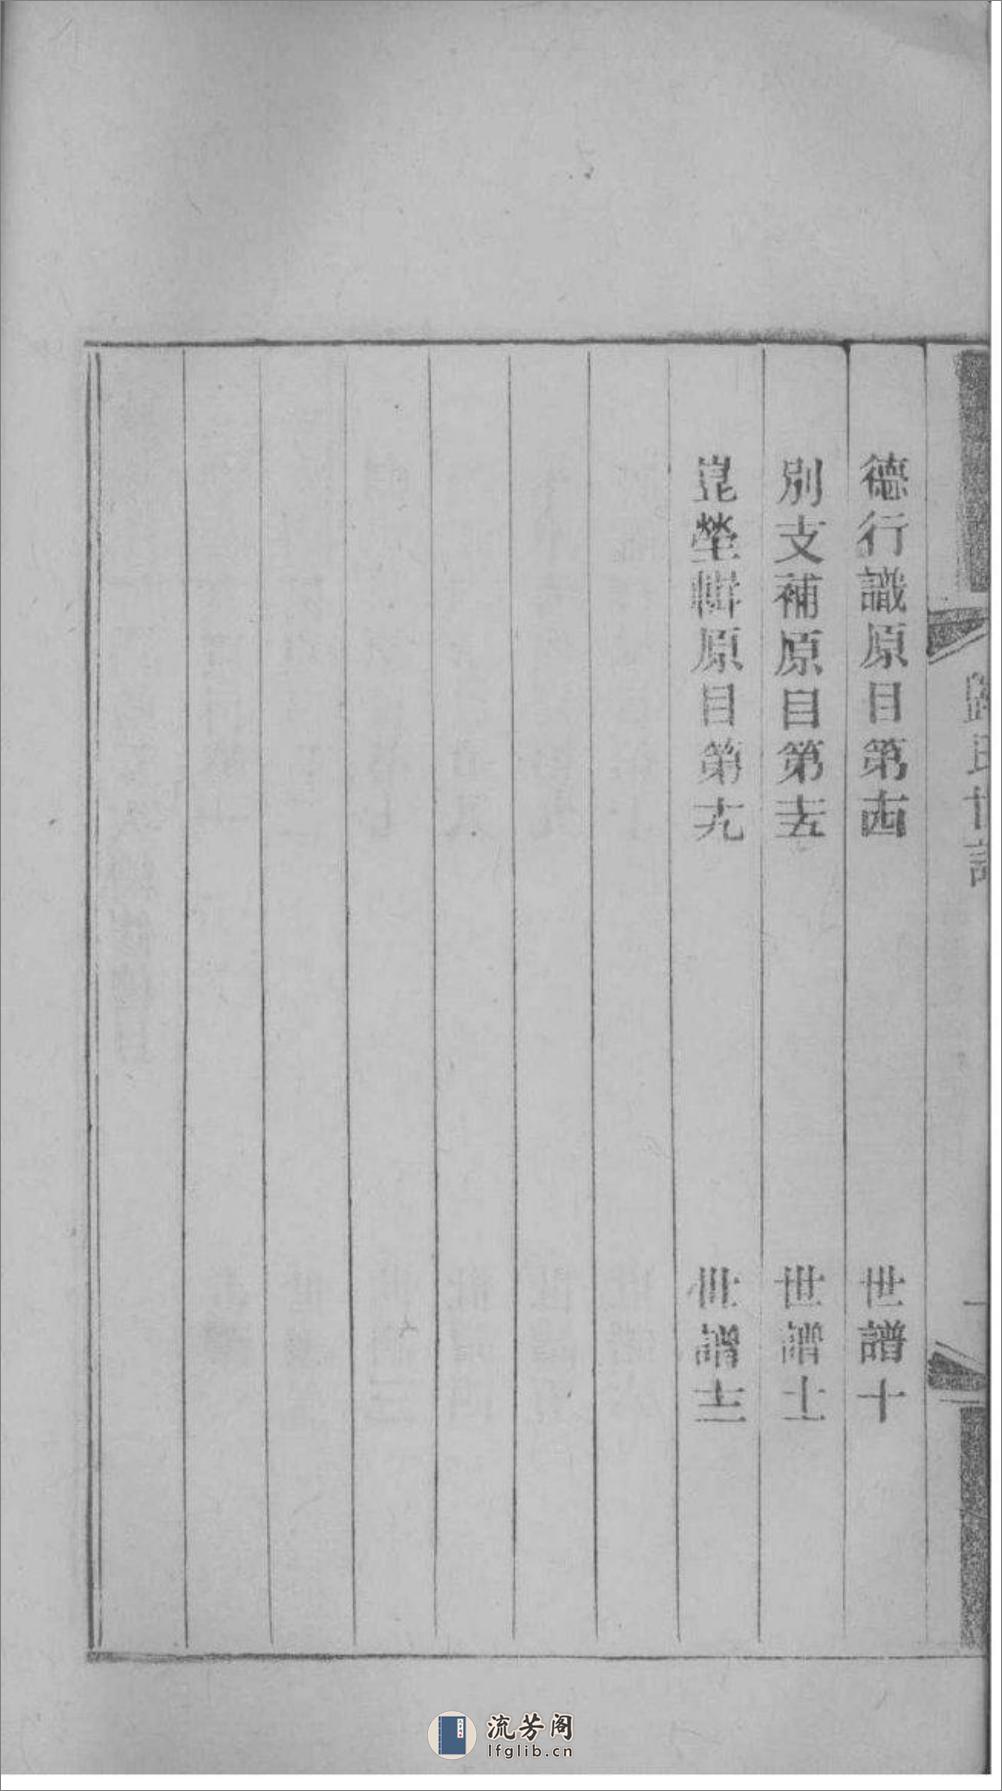 歸氏世譜
一
德行識原目第十四　世譜十
別支補原目第十五　世譜十一
崑塋輯原目第十九　世譜十二
流芳阁
lfglib.cn